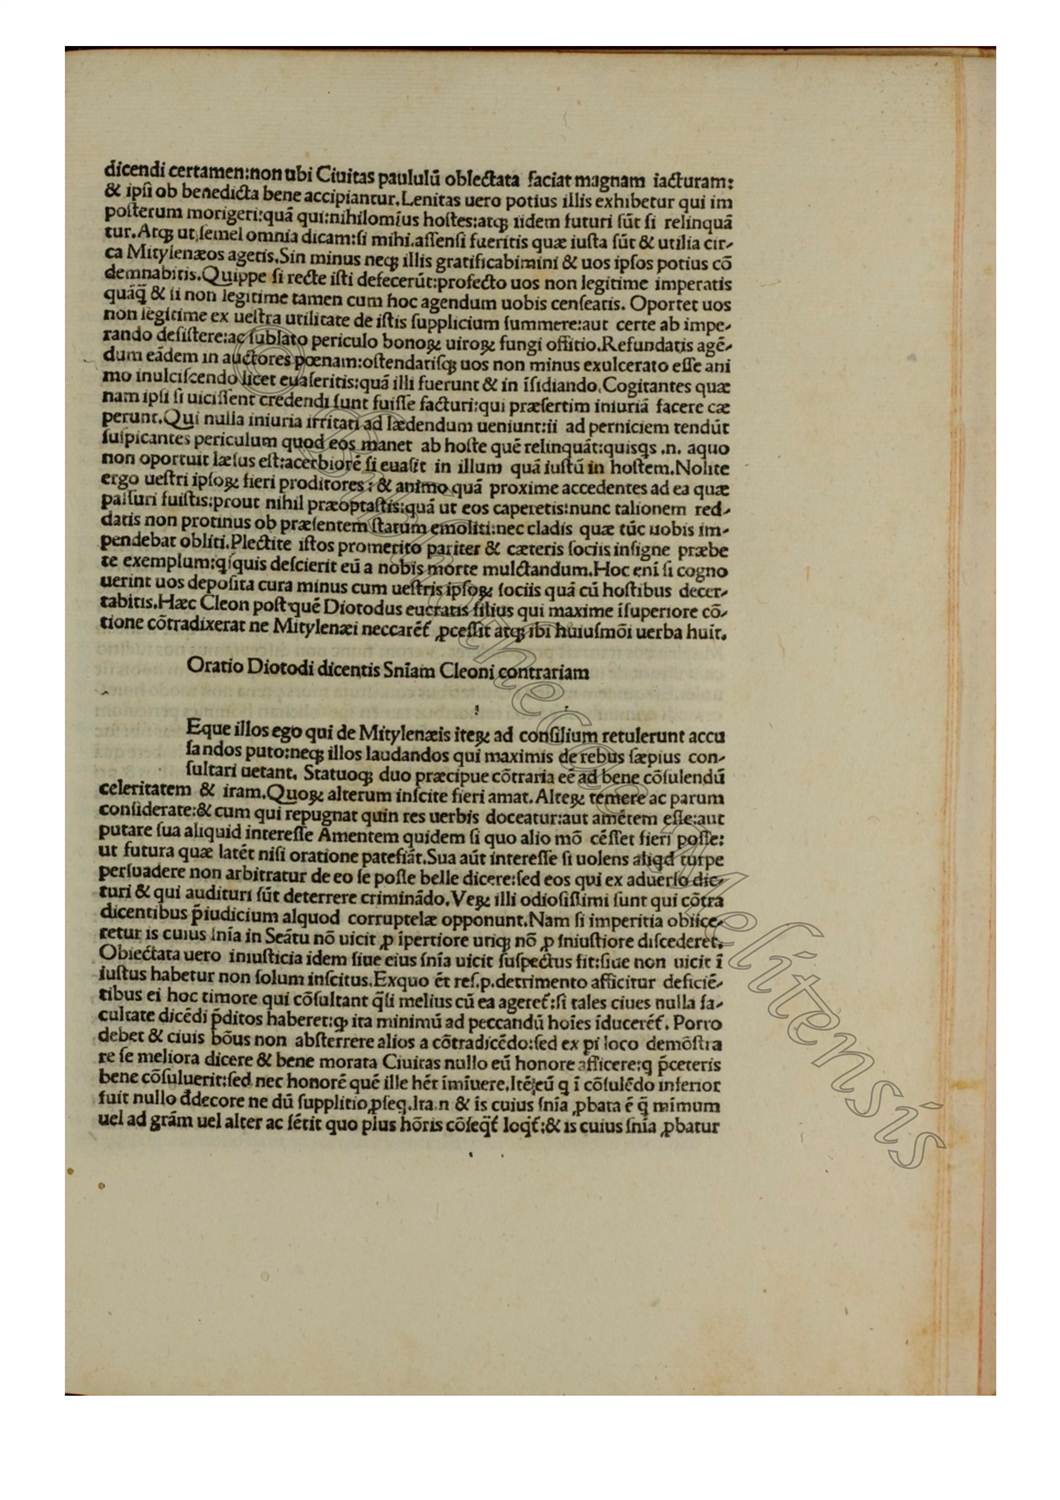 dicendi certamen:non ubi Ciuitas paululū oblectata faciat magnam iacturam:
& ipſi ob benedicta bene accipiantur.Lenitas uero potius illis exhibetur qui im
poſterum morigeri:quā qui:nihilomīus hoſtes:atqꝫ iidem futuri ſūt ſi relinquā
tur.Atqꝫ ut ſemel omnia dicam:ſi mihi aſſenſi fueritis quæ iuſta ſūt & utilia cir-
ca Mitylenæos agetis.Sin minus neqꝫ illis gratificabimini & uos ipſos potius cō
demnabitis.Quippe ſi recte iſti defecerūt:profecto uos non legitime imperatis
quāq̄ & ii non legitime tamen cum hoc agendum uobis cenſeatis. Oportet uos
non legitime ex ueſtra utilitate de iſtis ſupplicium ſummere:aut certe ab impe-
rando deſiſtere:ac ſublato periculo bonoꝝ uiroꝝ fungi offitio.Refundatis agē-
dum eādem in auctores pœnam:oſtendatiſqꝫ uos non minus exulcerato eſſe ani
mo inulciſcendo licet euaſeritis:quā illi fuerunt & in īſidiando.Cogitantes quæ
nam ipſi ſi uiciſſent credendi ſunt fuiſſe facturi:qui præſertim iniuriā facere cæ
perunt.Qui nulla iniuria irritati ad lædendum ueniunt:ii ad perniciem tendūt
ſuſpicantes periculum quod eos manet ab hoſte quē relinquāt:quisqs .n. aquo
non oportuit læſus eſt:acerbiorē ſi euaſit in illum quā iuſtū in hoſtem.Nolite
ergo ueſtri ipſoꝝ fieri proditores: & animo quā proxime accedentes ad ea quæ
paſſuri fuiſtis:prout nihil præoptaſtis:quā ut eos caperetis:nunc talionem red-
datis non protinus ob præſentem ſtatum emoliti:nec cladis quæ tūc uobis im-
pendebat obliti.Plectite iſtos promerito pariter & cæteris ſociis inſigne præbe
te exemplum:qſquis deſcierit eū a nobis morte mulctandum.Hoc enī ſi cogno
uerint uos depoſita cura minus cum ueſtris ipſoꝝ ſociis quā cū hoſtibus decer-
tabitis.Hæc Cleon poſt quē Diotodus eucratis filius qui maxime īſuperiore cō-
tione cōtradixerat ne Mitylenæi neccarēt̄ ꝓceſſit atqꝫ ibi huiuſmōi uerba huit.
Oratio Diotodi dicentis Snīam Cleoni contrariam
Eque illos ego qui de Mitylenæis iteꝝ ad conſilium retulerunt accu
ſandos puto:neqꝫ illos laudandos qui maximis de rebus ſæpius con-
ſultari uetant. Statuoqꝫ duo præcipue cōtraria eē ad bene cōſulendū
celeritatem & iram.Quoꝝ alterum inſcite fieri amat.Alteꝝ temere ac parum
conſiderate:& cum qui repugnat quin res uerbis doceatur:aut amētem eſſe:aut
putare ſua aliquid intereſſe Amentem quidem ſi quo alio mō cēſſet fieri poſſe:
ut futura quæ latēt niſi oratione patefiāt.Sua aūt intereſſe ſi uolens aliqd turpe
perſuadere non arbitratur de eo ſe poſſe belle dicere:ſed eos qui ex aduerſo dic-
turi & qui audituri ſūt deterrere criminādo.Veꝝ illi odioſiſſimi ſunt qui cōtra
dicentibus p̄iudicium alquod corruptelæ opponunt.Nam ſi imperitia obiice-
retur is cuius ſnīa in Seātu nō uicit ꝓ īpertiore utiqꝫ nō ꝓ īniuſtiore diſcederet.
Obiectata uero iniuſticia idem ſiue eius ſnīa uicit ſuſpectus fit:ſiue non uicit ī
iuſtus habetur non ſolum inſcitus.Exquo ēt reſ.p.detrimento afficitur deficiē-
tibus ei hoc timore qui cōſultant q̄ſi melius cū ea ageret̄:ſi tales ciues nulla fa-
cultate dicēdi p̄ditos haberet:qꝫ ita minimū ad peccandū hoīes īducerēt̄. Porro
debet & ciuis bōus non abſterrere alios a cōtradicēdo:ſed ex pi loco demōſtra
re ſe meliora dicere & bene morata Ciuitas nullo eū honore afficere:q p̄ceteris
bene cōſuluerit:ſed nec honorē quē ille hēt īmīuere.Itē eū q ī cōſulēdo inferior
fuit nullo d̄decore ne dū ſupplitio ꝓſeq.Ita.n & īs cuius ſnīa ꝓbata ē q̄ mīmum
uel ad grām uel alter ac ſētit quo plus hōris cōſeq̄t̄ loq̄t̄:& is cuius ſnīa ꝓbatur